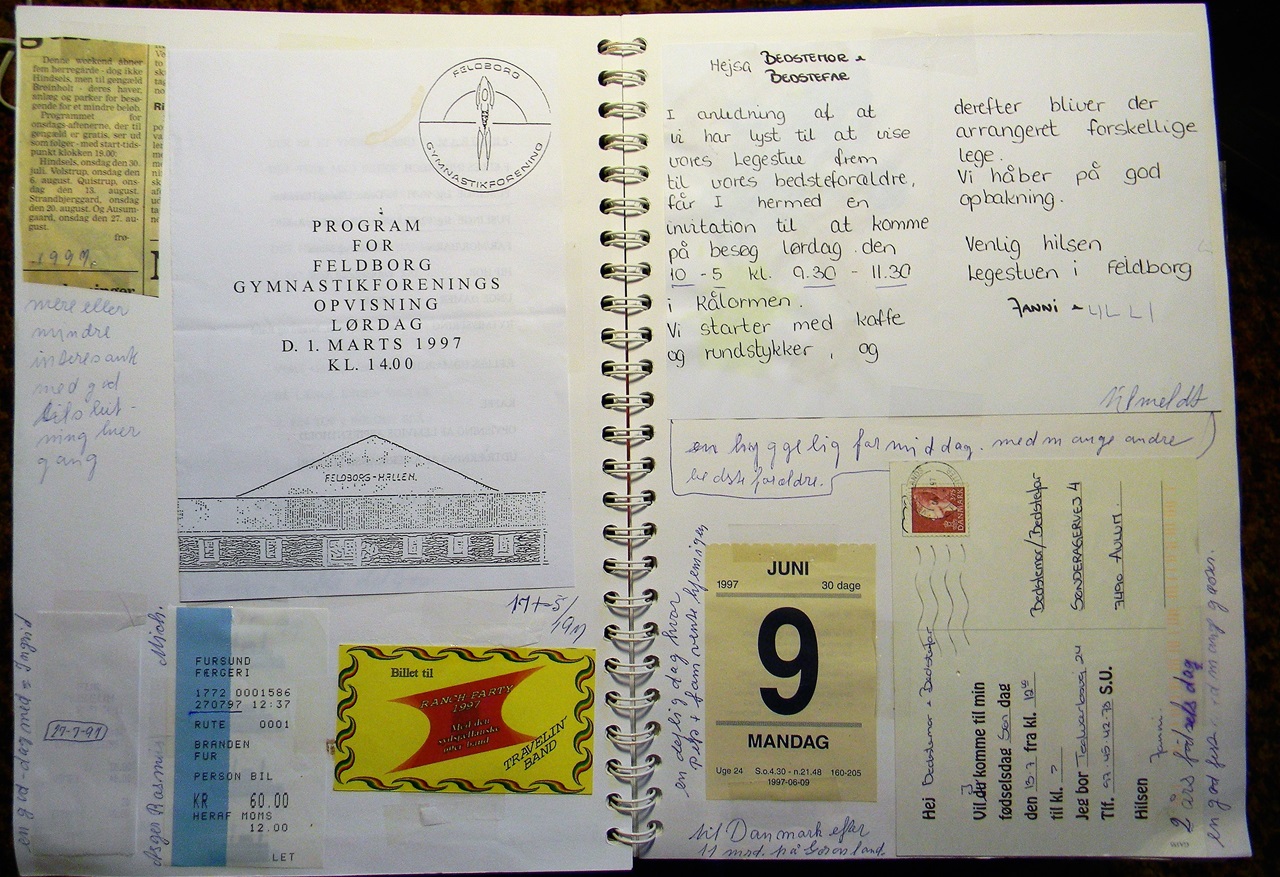 Denne weekend åbner
fem herregårde - dog ikke
Hindsels, men til gengæld
Breinholt - deres haver,
anlæg og parker for besø-
gende for et mindre beløb.
Programmet for
onsdags-aftenerne, der til
gengæld er gratis, ser ud
som følger - med start-tids-
punkt klokken 19.00:
Hindsels, onsdag den 30.
juli. Volstrup, onsdag den
6. august. Quistrup, ons-
dag den 13. august.
Strandbjerggard, onsdag
den 20. august. Og Ausum-
gaard, onsdag den 27. au-
gust.
frø-
1997.
mere eller
mindre
interesant
med god
tilslut-
ning hver
gang
FELDBORG
GYMNASTIKFORENING
PROGRAM
FOR
FELDBORG
GYMNASTIKFORENINGS
OPVISNING
LØRDAG
D. 1. MARTS 1997
KL. 14.00
FELDBORG-HALLEN.
en god dag med Ingrid
Asger Rasmus Mich.
FURSUND
FÆRGERI
1772 0001586
270797 12:37
RUTE 0001
BRANDEN
FUR
PERSON BIL
KR 60.00
HERAF MOMS
12.00
LET
17+
Billet til
RANCH-PARTY
1997
Med den
band
TRAVELIN'
BAND
Hejsa BEDSTEMOR &
BEDSTEFAR
I anledning af at
vi har lyst til at vise
vores Legestue frem
til vores bedsteforældre,
får I hermed en
invitation til at komme
på besøg lørdag den
10 - 5 kl. 9.30 - 11.30
i Kålormen.
Vi starter med kaffe
og rundstykker, og
derefter bliver der
arrangeret forskellige
lege.
Vi håber på god
opbakning.
Venlig hilsen
Legestuen i Feldborg
JANNI & ULLI
tilmeldt
en hyggelig formiddag. med mange andre
bedsteforældre.
en dejlig dag hvor
JUNI
1997 30 dage
9
MANDAG
Uge 24 S.o.4.30 - n.21.48 160-205
1997-06-09
til Danmark efter
11 mrd. på Grønland.
DANMARK
Bedstemor/Bedstefar
SØNDERAGERVEJ 4
7490 AULUM.
Hej Bedstemor & Bedstefar
Vil du komme til min
I
fødselsdag Søn dag
den 13-7 fra kl.
til kl. ?
Jeg bor 24
Tlf. 97.45.42.78 S.U.
Hilsen
2 års fødselsdag